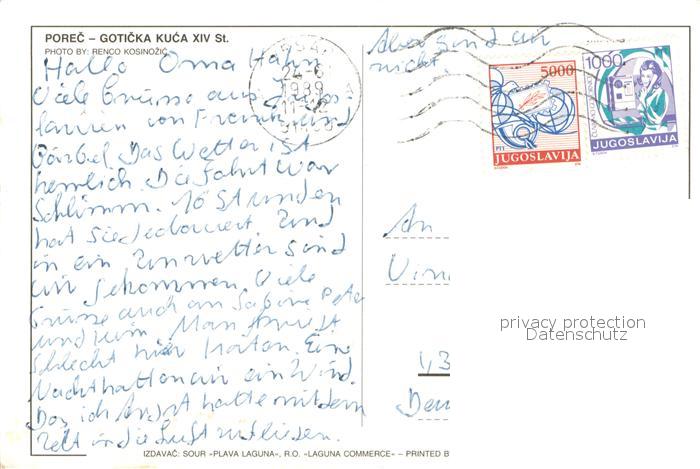 POREČ – GOTIČKA KUĆA XIV St.
PHOTO BY: RENCO KOSINOŽIĆ
Hallo Oma Hahn
Viele Grüsse aus Jugos
lawien von Frank und
Bärbel Das Wetter ist
herrlich. Die fahrt war
Schlimm. 16 Stunden
hat sie gedauert. Und
in ein Unwetter sind
wir gekommen. Viele
Grüsse auch an Sabine Peter
und Man
schlecht hier Karten. Eine
Nacht hatten wir ein Wind.
Das ich Angst hatte mit dem
Zelt in die Luft zu fliegen.
Aber sind wir
nicht
24-6
1989
5000
PTT
JUGOSLAVIJA
1000
JUGOSLAVIJA
An
1,3
privacy protection
Datenschutz
IZDAVAČ: SOUR »PLAVA LAGUNA«, R.O. »LAGUNA COMMERCE« – PRINTED B